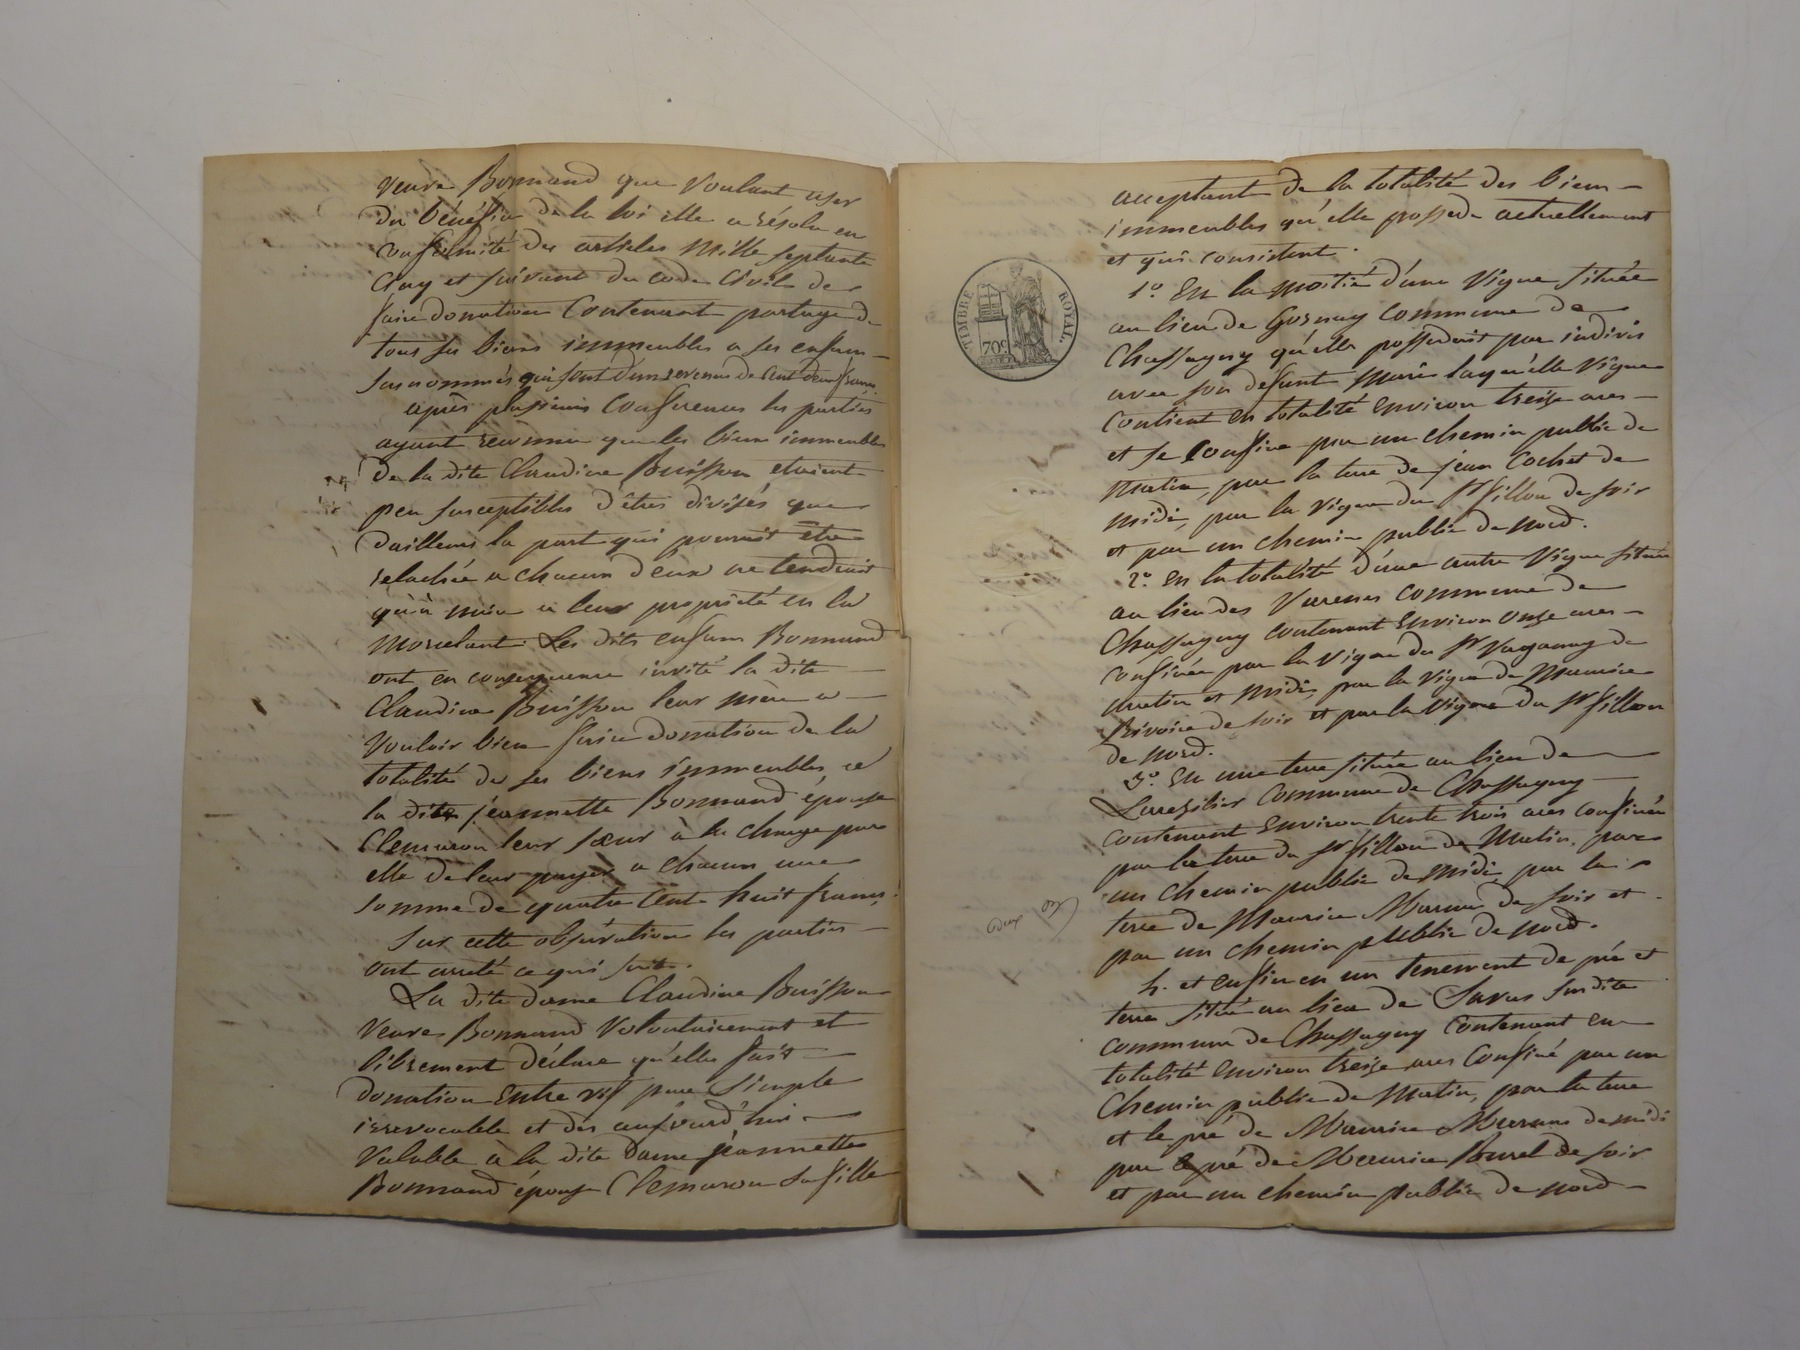 veuve Bonnand que voulant user
du bénéfice de la loi elle a résolu en
conformité des articles mille septante
cinq et suivant du code civil de
faire donation contenant partage de
tous ses biens immeubles a ses enfans
susnommés qui sont d'un revenus de cent deux francs.
après plusieurs conferences les parties
ayant reconnu que les biens immeubles
de la dite Claudine Buisson etaient
peu susceptibles d'êtres divisés que
dailleurs la part qui pourrait être
relachée a chacun d'eux ne tendrait
qu'à nuire a leur propriété en la
morcelant. Les dits enfans Bonnand
ont en consequence invité la dite
Claudine Buisson leur mère a
vouloir bien faire donation de la
totalité de ses biens immeubles, a
la dite jeannette Bonnand épouse
Clemaron leur sœur à la charge par
elle de leur payer a chacun une
somme de quatre cent huit francs.
Sur cette observation les parties
ont arreté ce qui suit.
La dite dame Claudine Buisson
veuve Bonnand volontairement et
librement déclare qu'elle fait
donation entre vif pure simple
irrevocable et dès aujourd'hui
valable à la dite dame jeannette
Bonnand épouse Clemaron sa fille
acceptant de la totalité des biens
immeubles qu'elle possede actuellement
et qui consistent.
TIMBRE ROYAL
70c
1º. En la moitié d'une vigne située
au lieu de Gosnay commune de
Chassagny qu'elle possedait par indivis
avec son defunt mari laquelle vigne
contient en totalité environ treize ares
et se confine par un chemin public de
matin, par la terre de jean Cochet de
midi, par la vigne du Sr fillon de soir
et par un chemin public de nord.
2º. en la totalité d'une autre vigne située
au lieu des Varenes commune de
Chassagny contenant environ onze ares
confinée par la vigne du Sr Vaganay de
matin et midi, par la vigne de Maurice
Rivoire de soir et par la vigne du Sr fillon
de nord.
3º. En une terre située au lieu de
commune de Chassagny
contenant environ trente trois ares confinée
par la terre du Sr fillon de matin, par
un chemin public de midi, par la
terre de Maurice de soir et
par un chemin public de nord.
deux
4. et enfin en un tenement de pré et
terre situé au lieu de susdite
commune de Chassagny contenant en
totalité environ treize ares confiné par un
chemin public de matin, par la terre
et le pré de Maurice de midi
par le pré de Maurice Burel de soir
et par un chemin public de nord